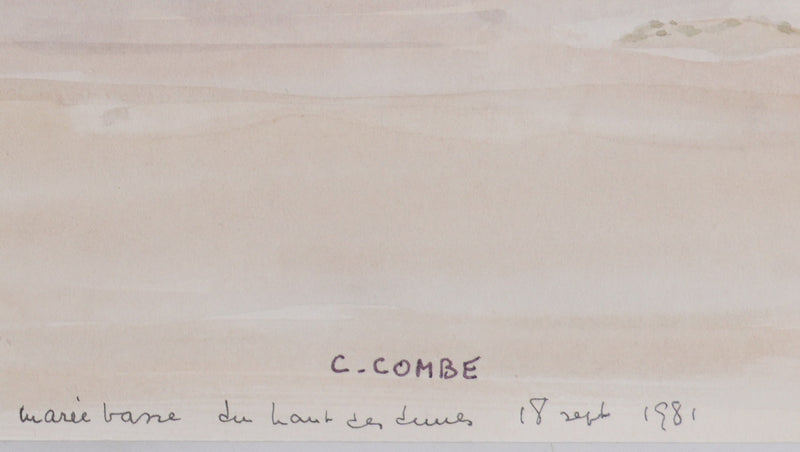 C. COMBE
marée basse du haut des dunes 18 sept 1981